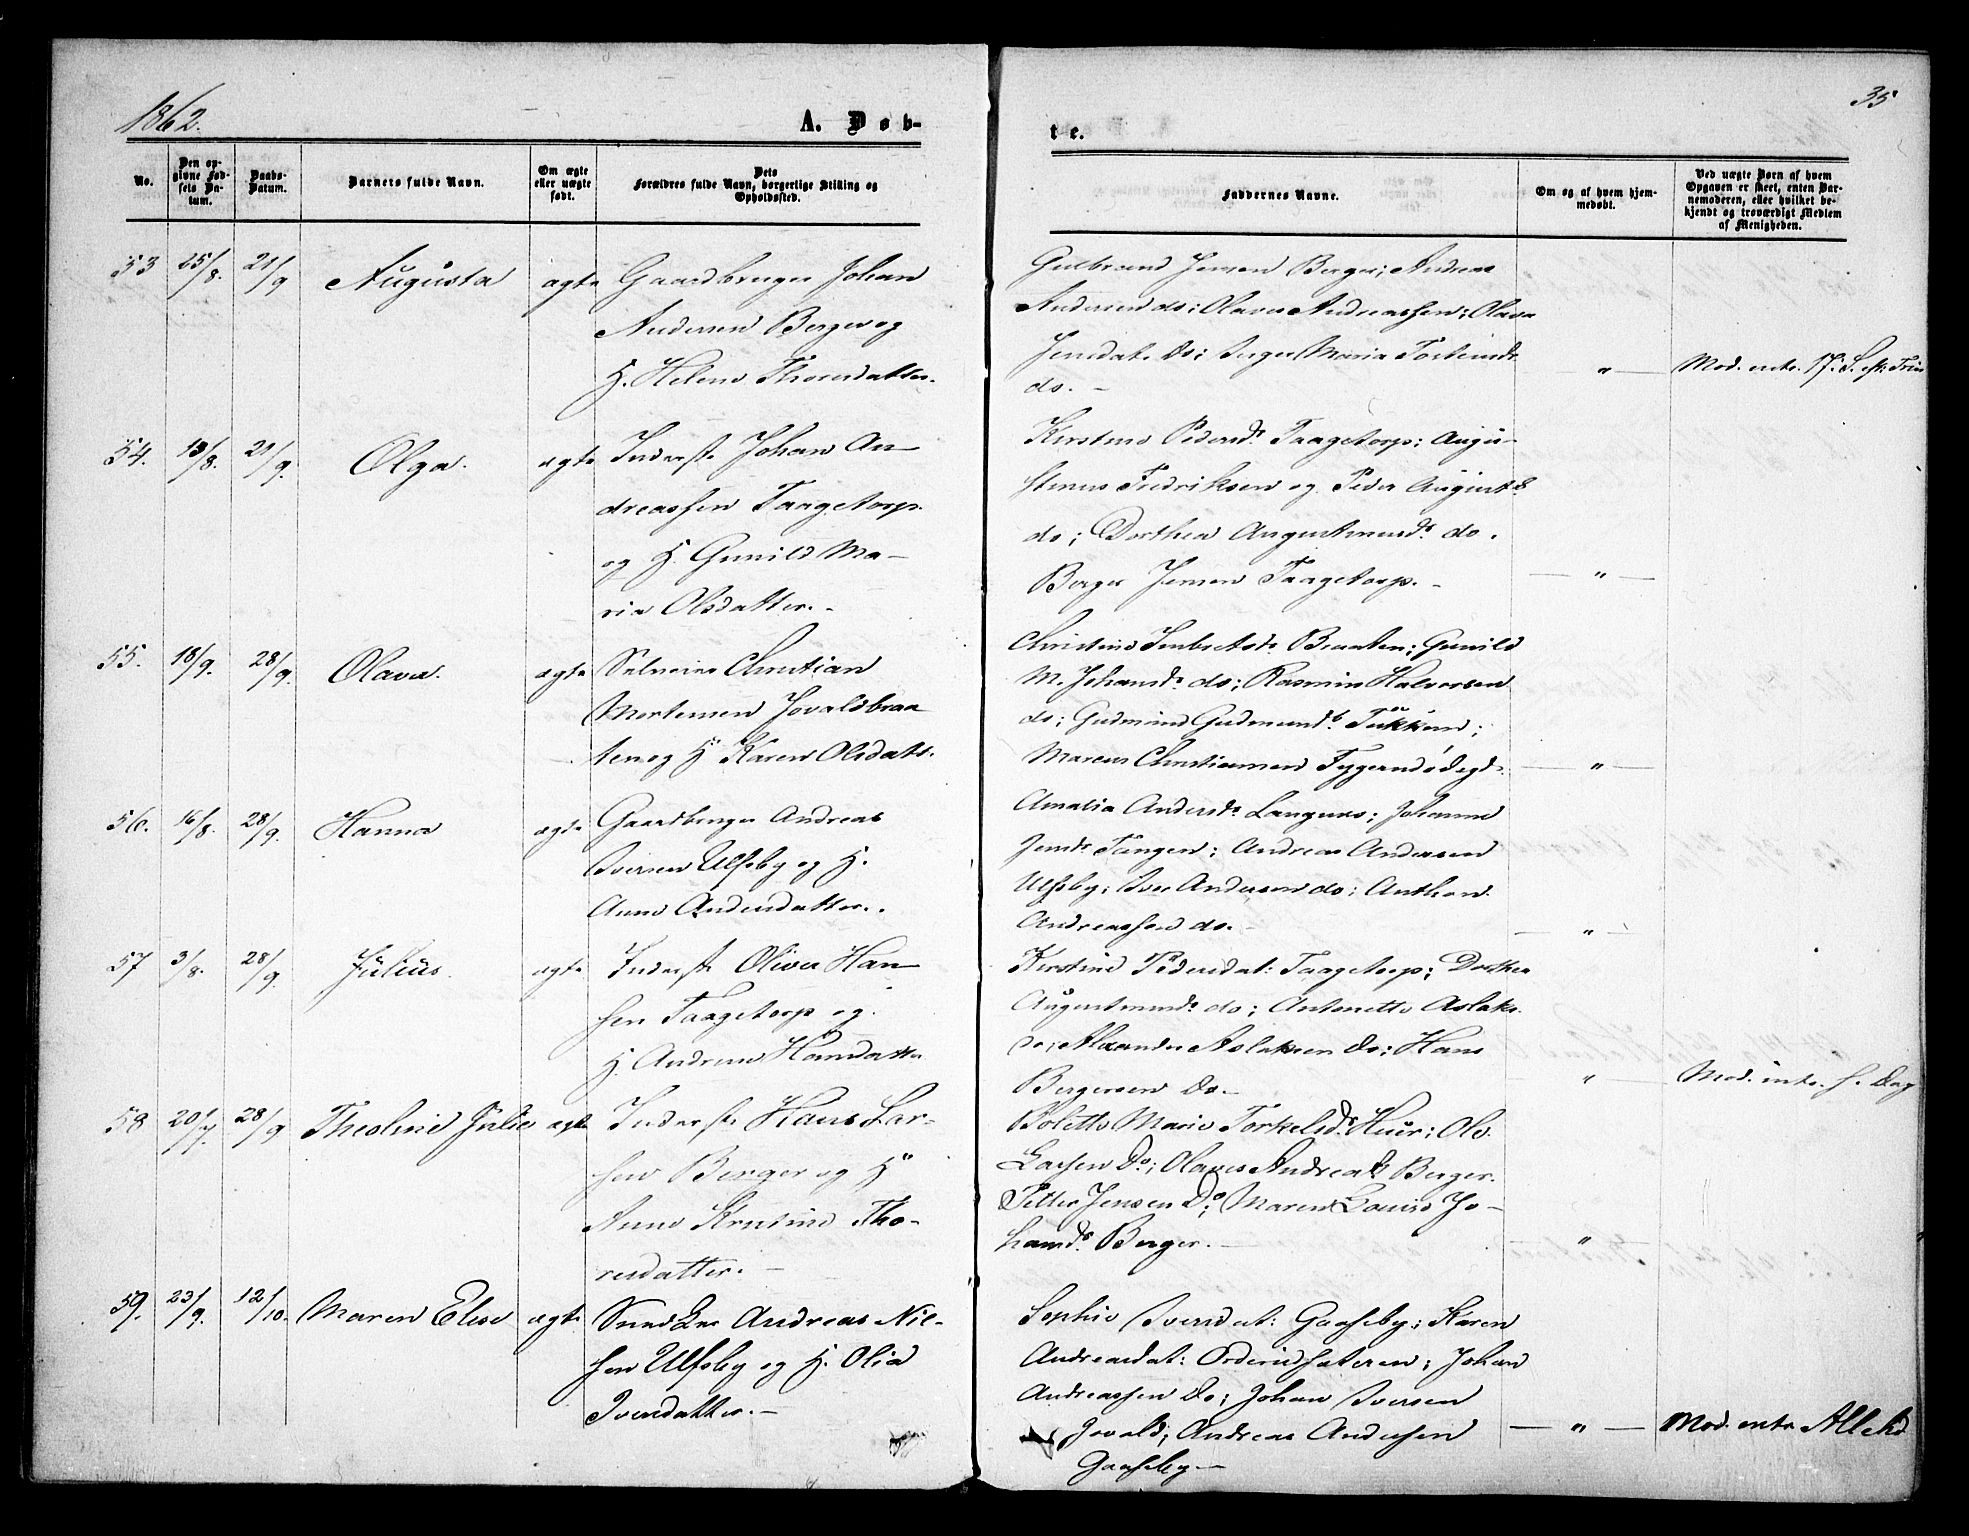 1862.
A. Døb-
te.
35
No.
Den opgivne Fødsels Datum.
Daabs-Datum.
Barnets fulde Navn.
Om ægte eller uægte født.
Dets Forældres fulde Navn, borgerlige Stilling og Opholdssted.
Faddernes Navne.
Om og af hvem hjemmedøbt.
Ved uægte Børn af hvem Opgaven er skeet, enten Barnemoderen, eller hvilket bekjendt og troværdigt Medlem af Menigheden.
53 25/8. 21/9 Augusta ægte Gaardbruger Johan
Andersen Berger og
H. Helene Thoresdatter.
Gulbrand Jensen Berger; Andreas
Andersen do; Olaves Andreassen; Olava
Jensdat. Do; Inger Maria Torkinsdr
do. -
"
Mod. intr. 17. S. eft. Trin
54. 13/8. 21/9. Olga. ægte Inderste Johan An-
dreassen Taagetorp.
og H. Gunild Ma-
ria Olsdatter. -
Kirstine Pedersdr. Taagetorp; Augu-
stinus Fredriksen og Peder Augusts.
do; Dorthea Augustinusdr. do.
Berger Jensen Taagetorp. -
"
55. 18/9. 28/9. Olava. ægte Selveier Christian
Mortensen Jovaldbraa
ten og H. Karen Olsdatt.
Christine Braaten; Gunild
M. Johansdr. do; Rasmus Halvorsen
do; Gudmund Gudmunds.
Marcus Christiansen
"
56. 16/8. 28/9. Hanna ægte Gaardbruger Andreas
Iversen Ulfsby og H.
Anne Andersdatter.
Amalia Andersdr. Langenes; Johanne
Jensdr. Tangen; Andreas Andersen
Ulfsby; Iver Andersen do; Anthon
Andreassen do. -
"
57 3/8. 28/9 Julius. ægte Inderste Oliver Han-
sen Taagetorp og.
H. Andrine Hansdatter
Kirstine Pedersdat: Taagetorp; Dorthea
Augustinusdr. do; Antonette Aslaks.
do; Alexander Aslaksen do; Hans
Bergersen Do. -
"
Mod. intr. s. Dag
58 20/7. 28/9 Theoline Julie ægte Inderste Hans Lar-
sen Berger og H.
Anne Kristine Tho-
resdatter. -
Bolette Marie Torkelsdr. Huer; Ole
Larsen Do; Olaves Andreas. Berger.
Petter Jensen Do; Maren Louise Jo-
hansdr. Berger. -
"
59. 23/9. 12/10. Maren Elise ægte Andreas Niel-
sen Ulfsby og H. Olia
Iversdatter. -
Sophie Iversdat: Gaaseby; Karen
Andreasdat: Johan
Andreassen Do; Johan Iversen
Jovald; Andreas Andersen
Gaaseby -
"
Mod. intr.